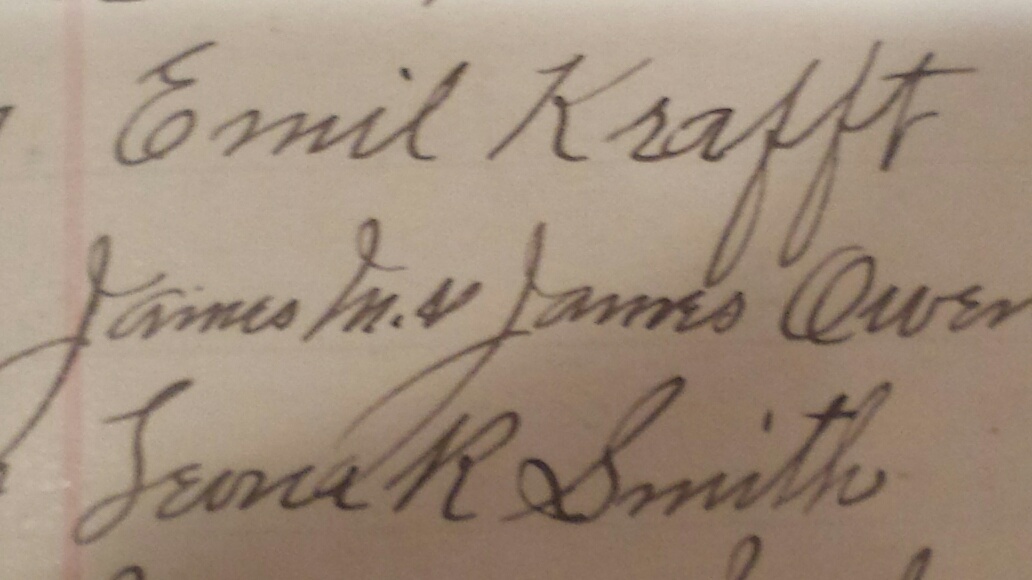 Emil Krafft
James M. & James Owen
Leona R Smith